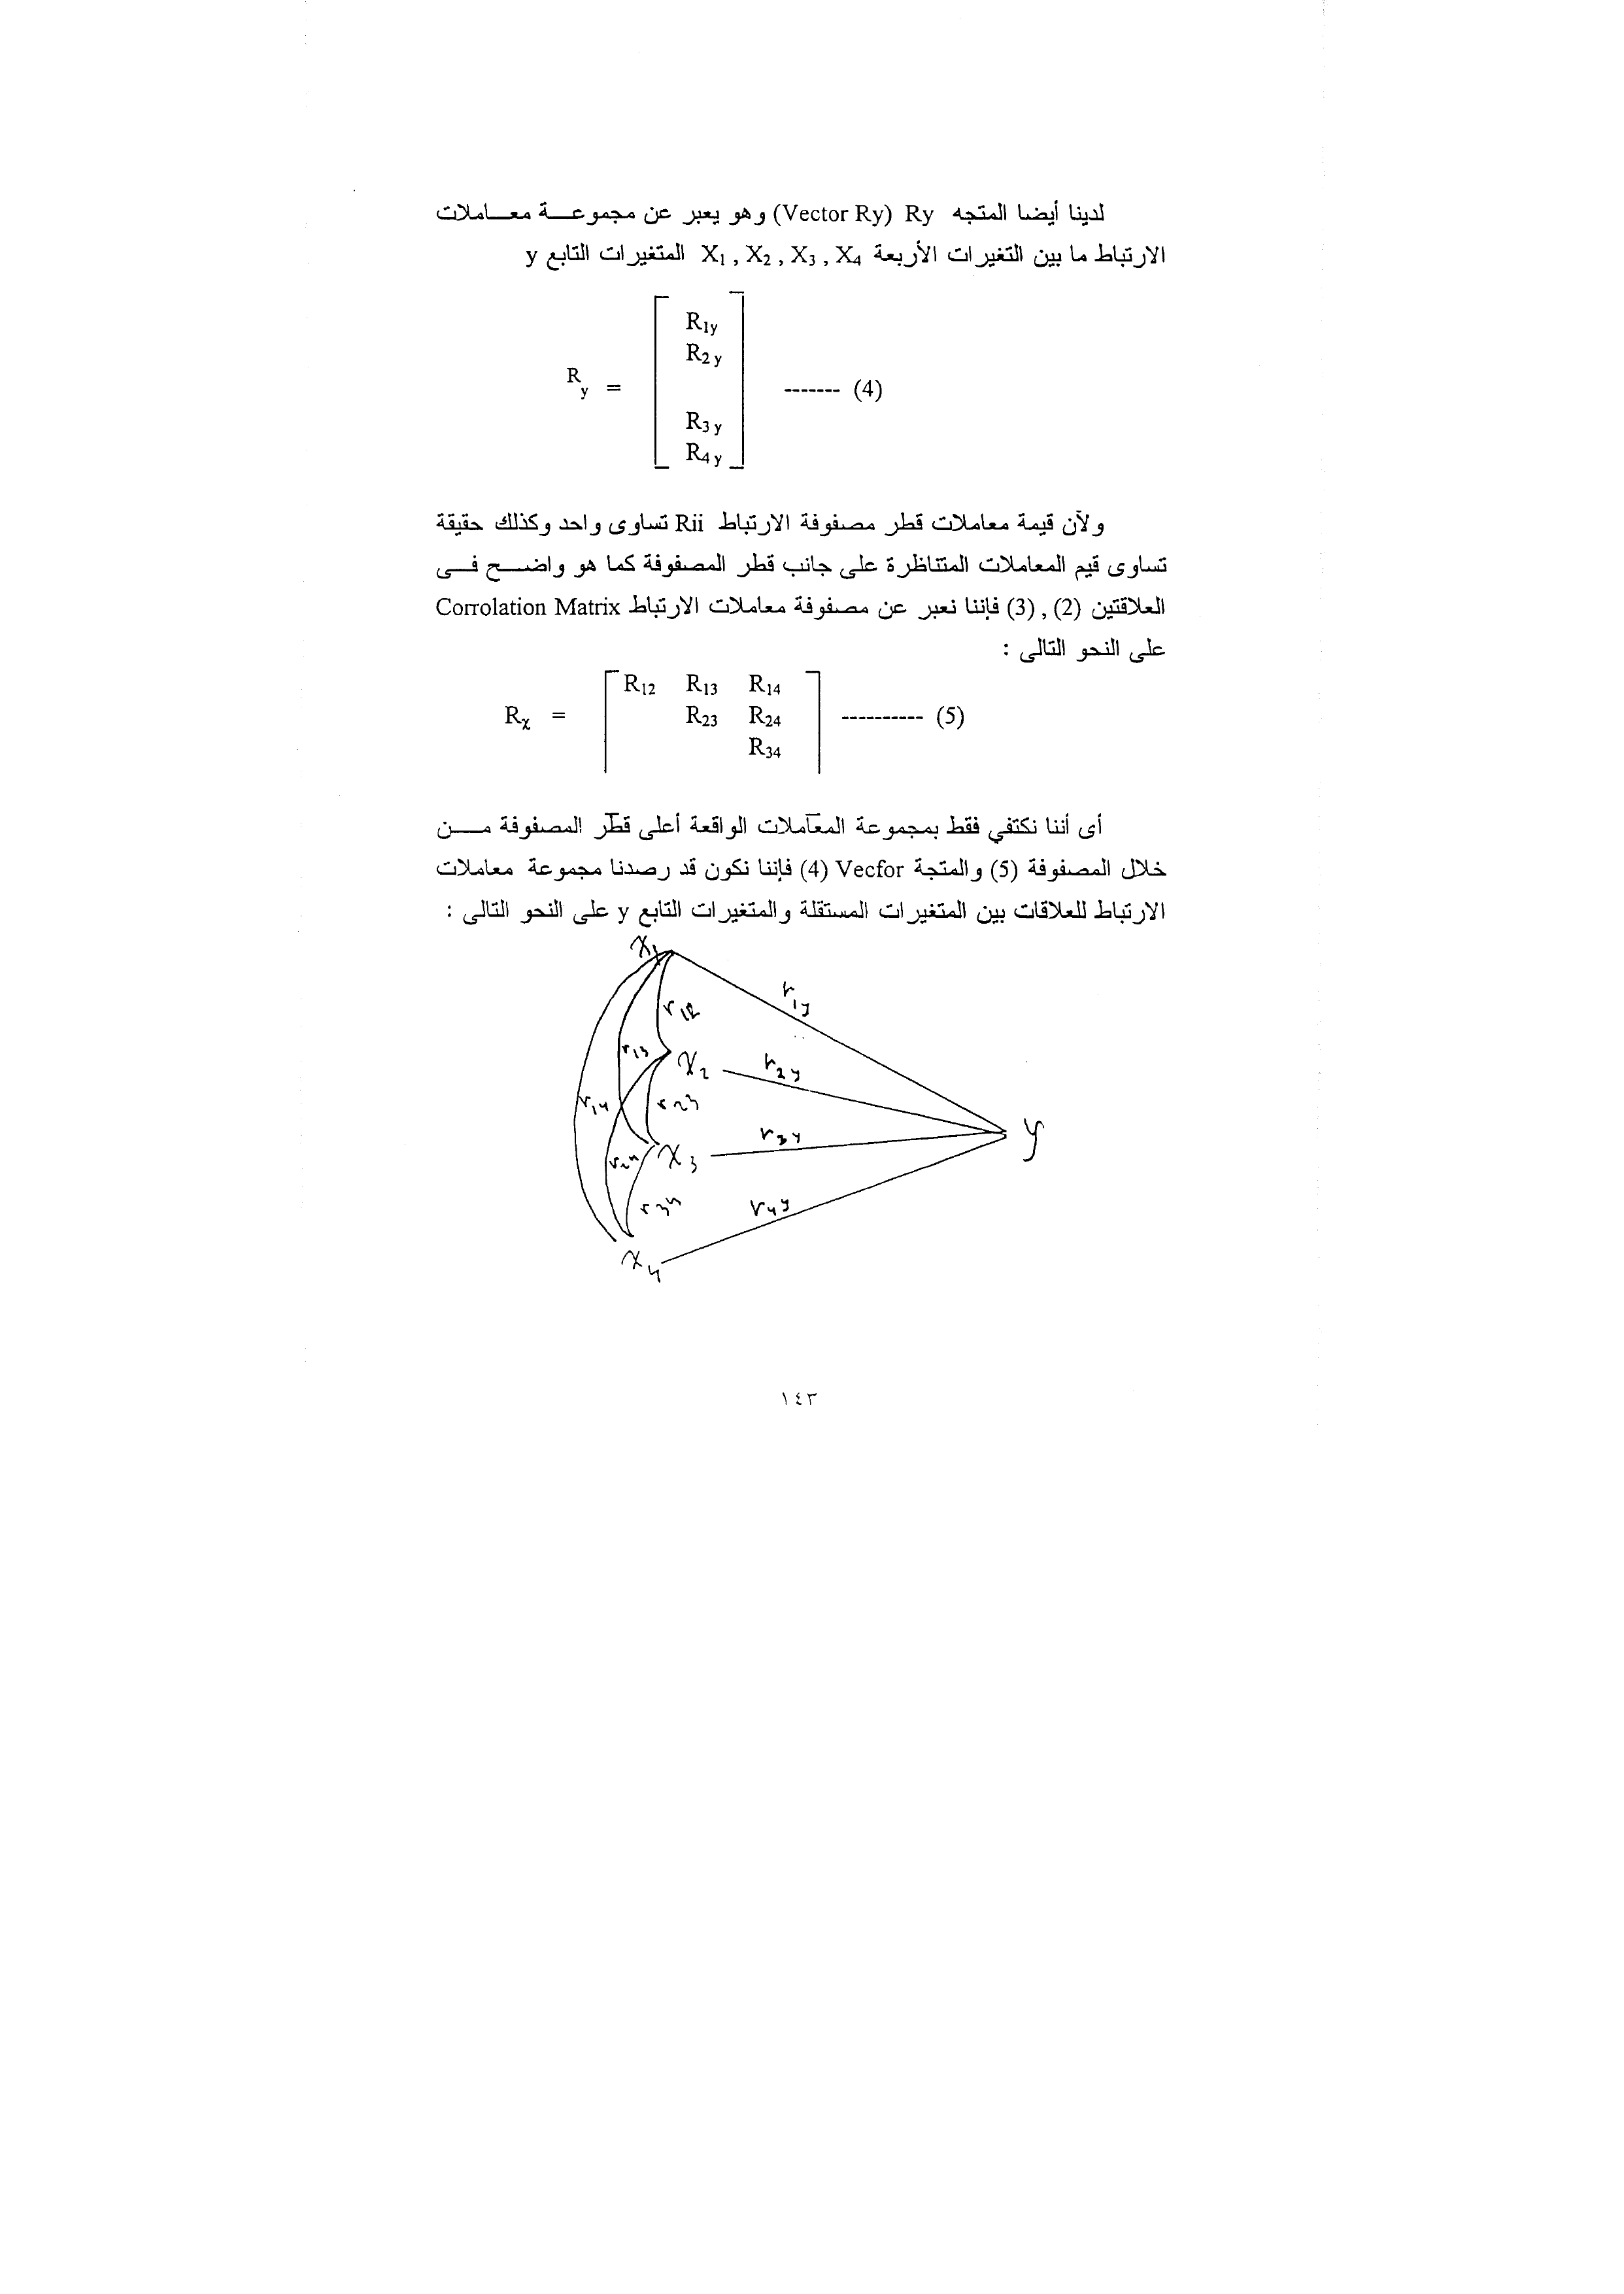 لدينا أيضا المتجه Ry (Vector Ry) وهو يعبر عن مجموعة معاملات
الارتباط ما بين التغيرات الأربعة X1 , X2 , X3 , X4 المتغيرات التابع y
R1y
R2 y
Ry = ------- (4)
R3 y
R4 y
ولآن قيمة معاملات قطر مصفوفة الارتباط Rii تساوى واحد وكذلك حقيقة
تساوى قيم المعاملات المتناظرة على جانب قطر المصفوفة كما هو واضح فى
العلاقتين (2) , (3) فإننا نعبر عن مصفوفة معاملات الارتباط Corrolation Matrix
على النحو التالى :
R12 R13 R14
Rχ = R23 R24 ---------- (5)
R34
أى أننا نكتفي فقط بمجموعة المعاملات الواقعة أعلى قطر المصفوفة من
خلال المصفوفة (5) والمتجة Vecfor (4) فإننا نكون قد رصدنا مجموعة معاملات
الارتباط للعلاقات بين المتغيرات المستقلة والمتغيرات التابع y على النحو التالى :
x1
r1y
r12
r13
x2 r2y
r14 r23
r3y y
r24 x3
r34 r4y
x4
١٤٣